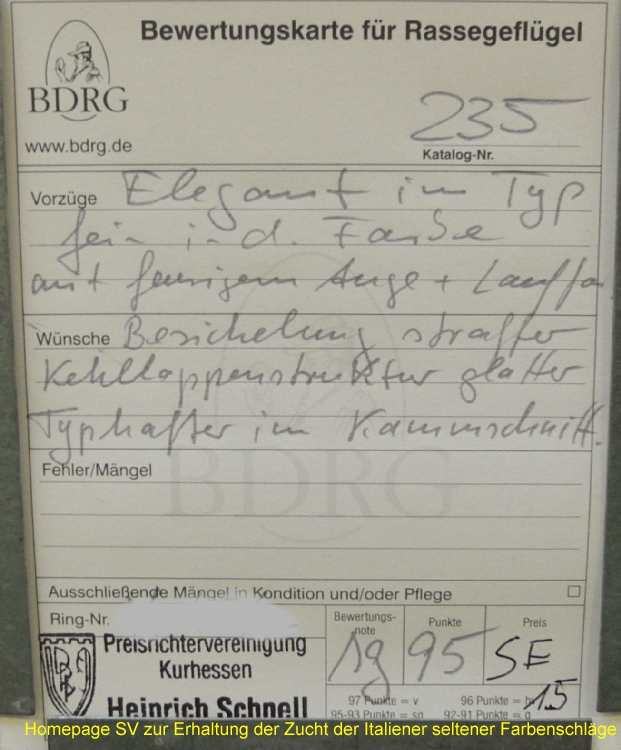 Bewertungskarte für Rassegeflügel
BDRG
www.bdrg.de
235
Katalog-Nr.
Vorzüge Elegant im Typ
fein i. d. Farbe
mit feurigem Auge + Lauffa
Wünsche Besichelung straffer
Kehllappenstruktur glatter
Typhafter im Kammschnitt.
Fehler/Mängel
BDRG
Ausschließende Mängel in Kondition und/oder Pflege
Ring-Nr.
Preisrichtervereinigung
Kurhessen
Heinrich Schnell
Bewertungs-
note
Punkte
Preis
sg 95 SE
15
97 Punkte = v 96 Punkte = h
95-93 Punkte = sg 92-91 Punkte = g
Homepage SV zur Erhaltung der Zucht der Italiener seltener Farbenschläge